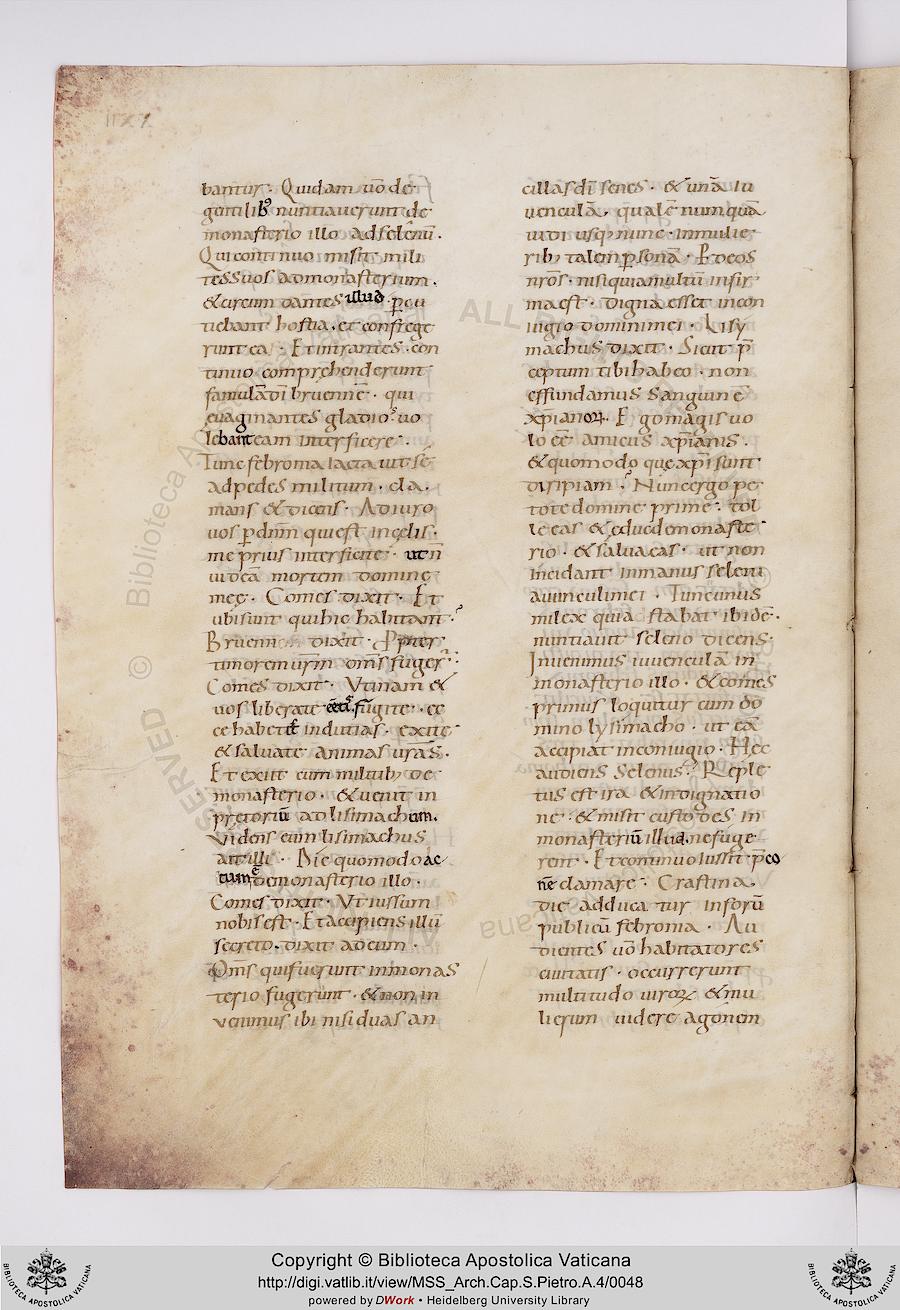 bantur. Quidam ũo de
gentilib; nuntiauerunt de
monasterio illo. ad selenũ.
Qui continuo misit mili
tes suos ad monasterium.
& circum dantes illud. ꝑcu
tiebant hostia. et confrege
runt ea. Et intrantes. con
tinuo comprehenderunt
famulã dĩ bruennẽ. qui
euaginantes gladios uo
lebant eam interficere.
Tunc febronia iacta uit sẽ
ad pedes militum. cla.
mans & dicens. Adiuro
uos ꝑ dñm qui est in cęlis.
me prius interficite. ut ñ
uideã mortem domine
meę. Comes dixit. Et
ubi sunt quihic habitant?
Bruenn dixit. Propter
timorem ur̃m om̃s fuger̃.
Comes dixit. Vtinam &
uos liberate fugite. ec
ce habetis inditias. exite
& saluate animas ur̃as.
Et exiit cum militib; de
monasterio. & uenit in
pretoriũ ad lisimachum.
Videns eum lisimachus
ait illi. Dic quomodo ac
tum ẽ de monasterio illo.
Comes dixit. Vt iussum
nobis est. Et accipiens illũ
secreto. dixit ad eum.
Om̃s qui fuerunt in monas
terio fugerunt. & non in
uenimus ibi nisi duas an
cillas dĩ senes. & unã iu
uenculã. qualẽ numquã
uidi usq; nunc. in mulie
rib; talem ꝑsonã. Ꝑ deos
nr̃os. nisi quia multũ infir
ma est. digna esset in con
iugio domini mei. Lisy
machus dixit. Sicut p̃
ceptum tibi habeo. non
effundamus sanguinẽ
xp̃ianoꝝ. Ego magis uo
lo eẽ amicus xp̃ianis.
& quomodo que xp̃i sunt
disipiam? Nunc ergo pe
to te domine prime. tol
le eas & educ de monaste
rio. & salua eas. ut non
incidant in manus seleni
auunculi mei. Tunc unus
milex quia stabat ibidẽ.
nuntiauit seleno dicens.
Inuenimus iuuenculã in
monasterio illo. & comes
primus loquitur cum do
mino lysimacho. ut eã
accipiat in coniugio. Hec
audiens Selenus. Reple
tus est ira & indignatio
ne. & misit custodes in
monasteriũ illud. ne fuge
rent. Et continuo iussit. p̃co
nẽ clamare. Crastina.
die adduca tur in forũ
publicũ febronia. Au
dientes ũo habitatores
ciuitatis. occurrerunt
multitudo uiroꝝ & mu
lierum uidere agonem
© Biblioteca Apostolica Vaticana
ALL RIGHTS RESERVED
Copyright © Biblioteca Apostolica Vaticana
http://digi.vatlib.it/view/MSS_Arch.Cap.S.Pietro.A.4/0048
powered by DWork • Heidelberg University Library
BIBLIOTECA APOSTOLICA VATICANA
BIBLIOTECA APOSTOLICA VATICANA